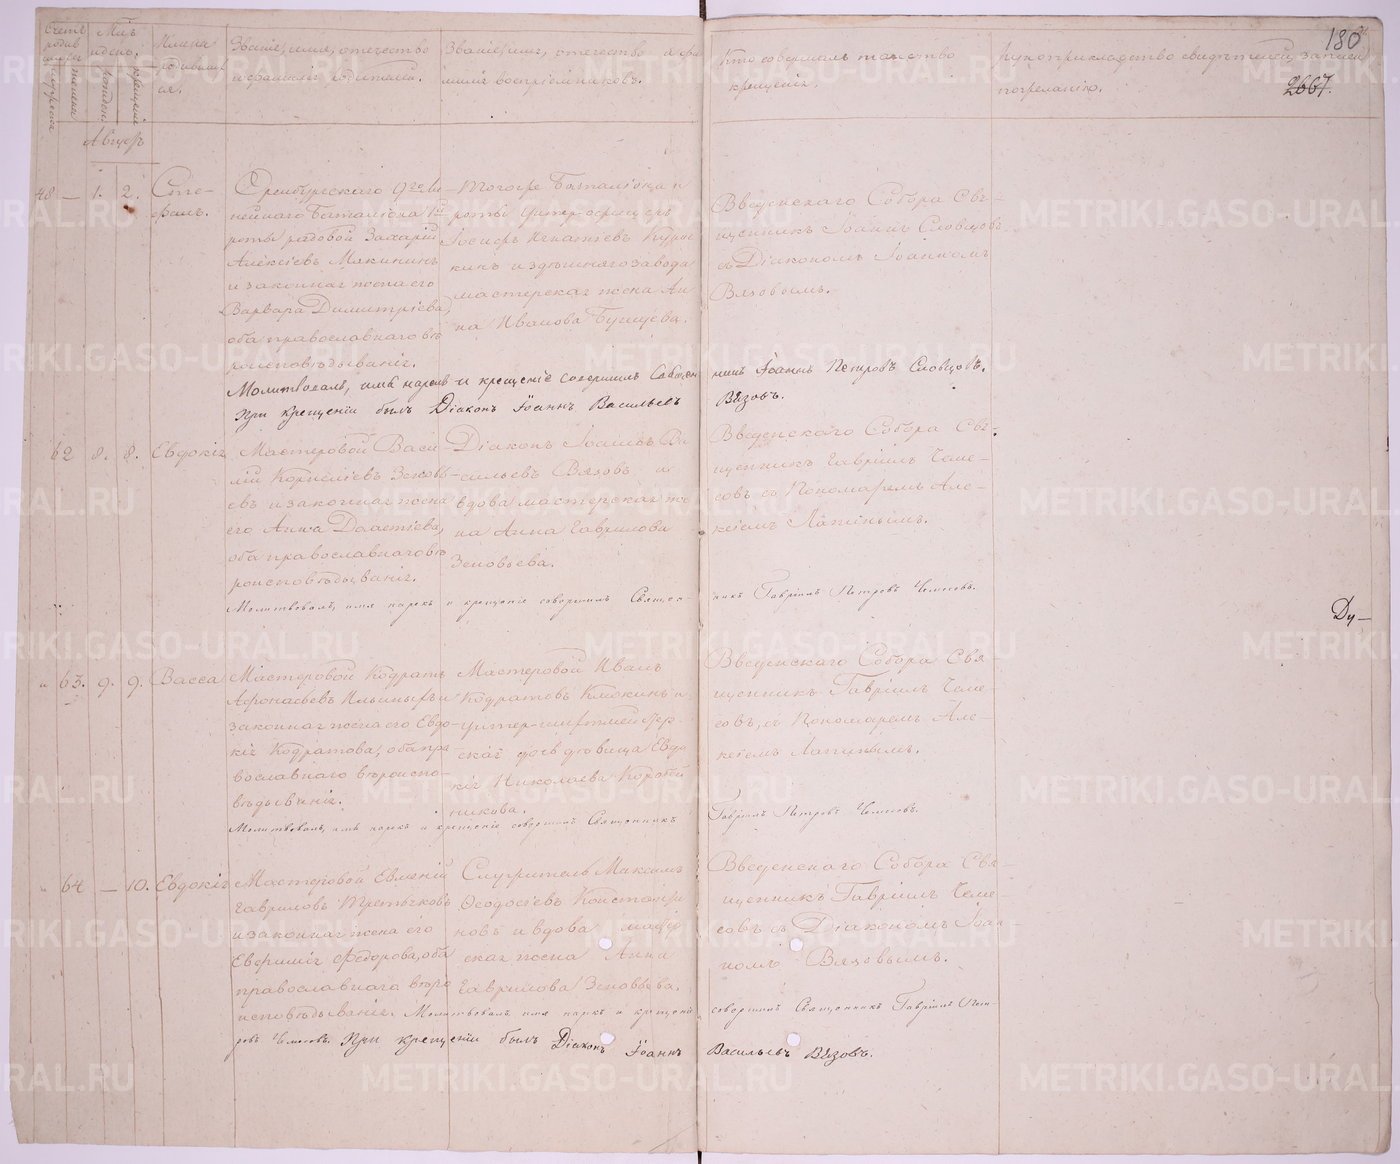 180
2667.
Счетъ родившихся
Мѣ-
Имена родивших-
ся.
Званіе, имя, отечество
и фамилія родителей.
Званіе, имя, отечество и фа-
милія воспріемниковъ.
Кто совершалъ таинство
крещенія.
Рукоприкладство свидѣтелей записи
по желанію.
Августъ
48 — 1. 2. Сте-
фанъ.
Оренбургскаго 9го Ли-
нейнаго Баталіона 1й
роты рядовой Захарій
Алексіевъ Макининъ
и законная жена его
Варвара Димитріева,
оба православнаго вѣ-
роисповѣдыванія.
Тогоже Баталіона и
роты Унтер-офицеръ
Іосифъ Игнатіевъ
кинъ и здѣшняго завода
мастерская жена Ан-
на Иванова
Введенскаго Собора Свя-
щенникъ Іоаннъ Словцовъ
съ Діакономъ Іоанномъ
Вязовымъ.
Молитвовалъ, имя нарекъ и крещеніе совершилъ Священ-
никъ Іоаннъ Петровъ Словцовъ.
При крещеніи былъ Діаконъ Іоаннъ Васильевъ
Вязовъ.
62 8. 8. Евдокія
Мастеровой Васи-
лій Корниліевъ Зеновь-
евъ и законная жена
его Анна
оба православнаго вѣ-
роисповѣдыванія.
Діаконъ Іоаннъ Ва-
сильевъ Вязовъ и
вдова мастерская же-
на Анна Гаврилова
Зеновьева.
Введенскаго Собора Свя-
щенникъ Гавріилъ Чеме-
совъ съ Пономаремъ Але-
ксіемъ Лапинымъ.
Молитвовалъ, имя нарекъ и крещеніе совершилъ Священ-
никъ Гавріилъ Петровъ Чемесовъ.
Ду-
63. 9. 9. Васса
Мастеровой Кодратъ
Афонасьевъ Ильиныхъ и
законная жена его Евдо-
кія Кодратова, оба пра-
вославнаго вѣроиспо-
вѣдыванія.
Мастеровой Иванъ
Кодратовъ Клюкинъ и
унтер-шихтмейстер-
ская дочь дѣвица Евдо-
кія Николаева Коробей-
никова.
Введенскаго Собора Свя-
щенникъ Гавріилъ Чеме-
совъ, съ Пономаремъ Але-
ксіемъ Лапинымъ.
Молитвовалъ, имя нарекъ и крещеніе совершилъ Священникъ
Гавріилъ Петровъ Чемесовъ.
64 — 10. Евдокія
Мастеровой Евгеній
Гавриловъ Третьяковъ
и законная жена его
Федорова, оба
православнаго вѣро-
исповѣдыванія.
Служитель Максимъ
Ѳеодосіевъ Константи-
новъ и вдова мастер-
ская жена Анна
Гаврилова Зеновьева.
Введенскаго Собора Свя-
щенникъ Гавріилъ Чеме-
совъ съ Діакономъ Іоан-
номъ Вязовымъ.
Молитвовалъ, имя нарекъ и крещеніе
совершилъ Священникъ Гавріилъ Пет-
ровъ Чемесовъ. При крещеніи былъ Діаконъ Іоаннъ
Васильевъ Вязовъ.
METRIKI.GASO-URAL.RU